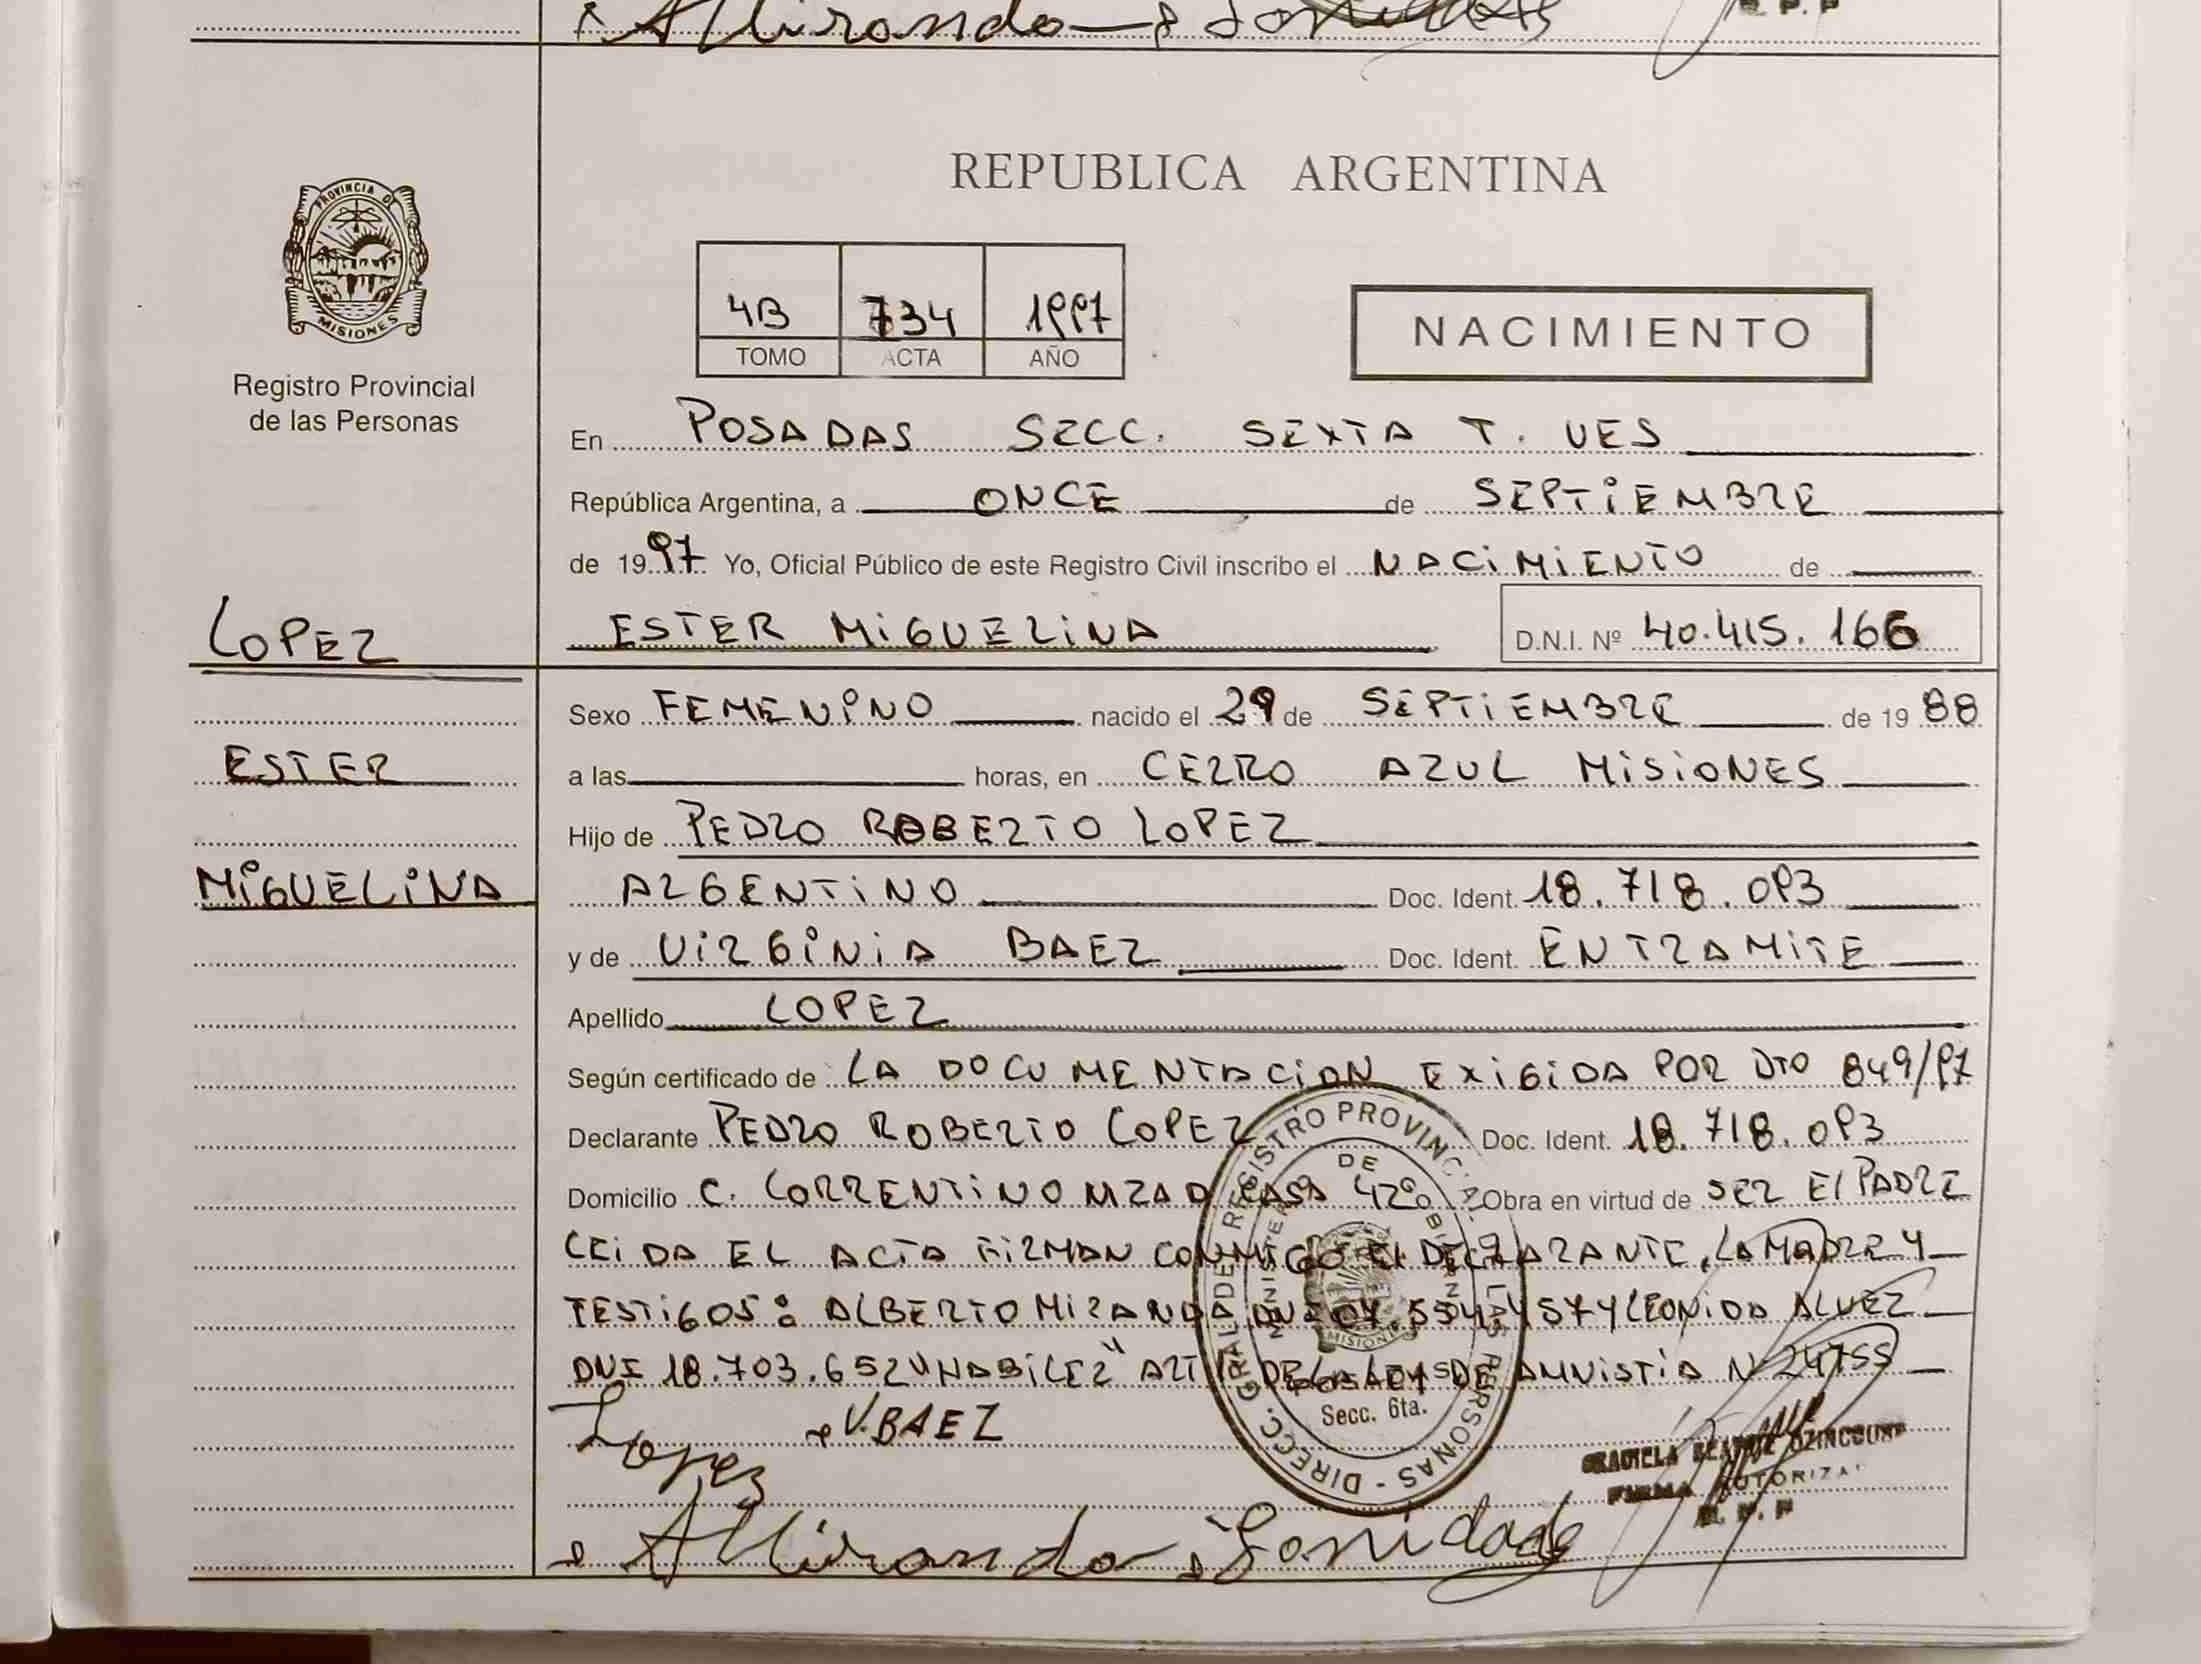 PROVINCIA D
MISIONES
Registro Provincial
de las Personas
REPUBLICA ARGENTINA
4B 734 1997
TOMO ACTA AÑO
NACIMIENTO
En POSADAS SECC. SEXTA T. UES
República Argentina, a ONCE de SEPTIEMBRE
de 1997 Yo, Oficial Público de este Registro Civil inscribo el NACIMIENTO de
ESTER MIGUELINA D.N.I. Nº 40.415.166
LOPEZ
ESTER
MIGUELINA
Sexo FEMENINO nacido el 29 de SEPTIEMBRE de 1988
a las horas, en CERRO AZUL MISIONES
Hijo de PEDRO ROBERTO LOPEZ
ARGENTINO Doc. Ident. 18.718.093
y de VIRGINIA BAEZ Doc. Ident. EN TRAMITE
Apellido LOPEZ
Según certificado de LA DOCUMENTACION EXIGIDA POR DTO 849/97
Declarante PEDRO ROBERTO LOPEZ Doc. Ident. 18.718.093
Domicilio C. CORRENTINO MZA D CASA 42 Obra en virtud de SER El PADRE
LEIDA EL ACTA FIRMAN CONMIGO El DECLARANTE, LA MADRE Y
TESTIGOS: ALBERTO MIRANDA Y LEONIDA ALVEZ
DNI 18.703.652 "HABILEZ" ART DE LA LEY DE AMNISTIA N 24755
DIRECC. GRAL DE REGISTRO PROVINCIAL DE LAS PERSONAS
MISIONES
Secc. 6ta.
Lopez V. BAEZ
GRACIELA BEATRIZ
FIRMA AUTORIZA
R. P. P
AMiranda